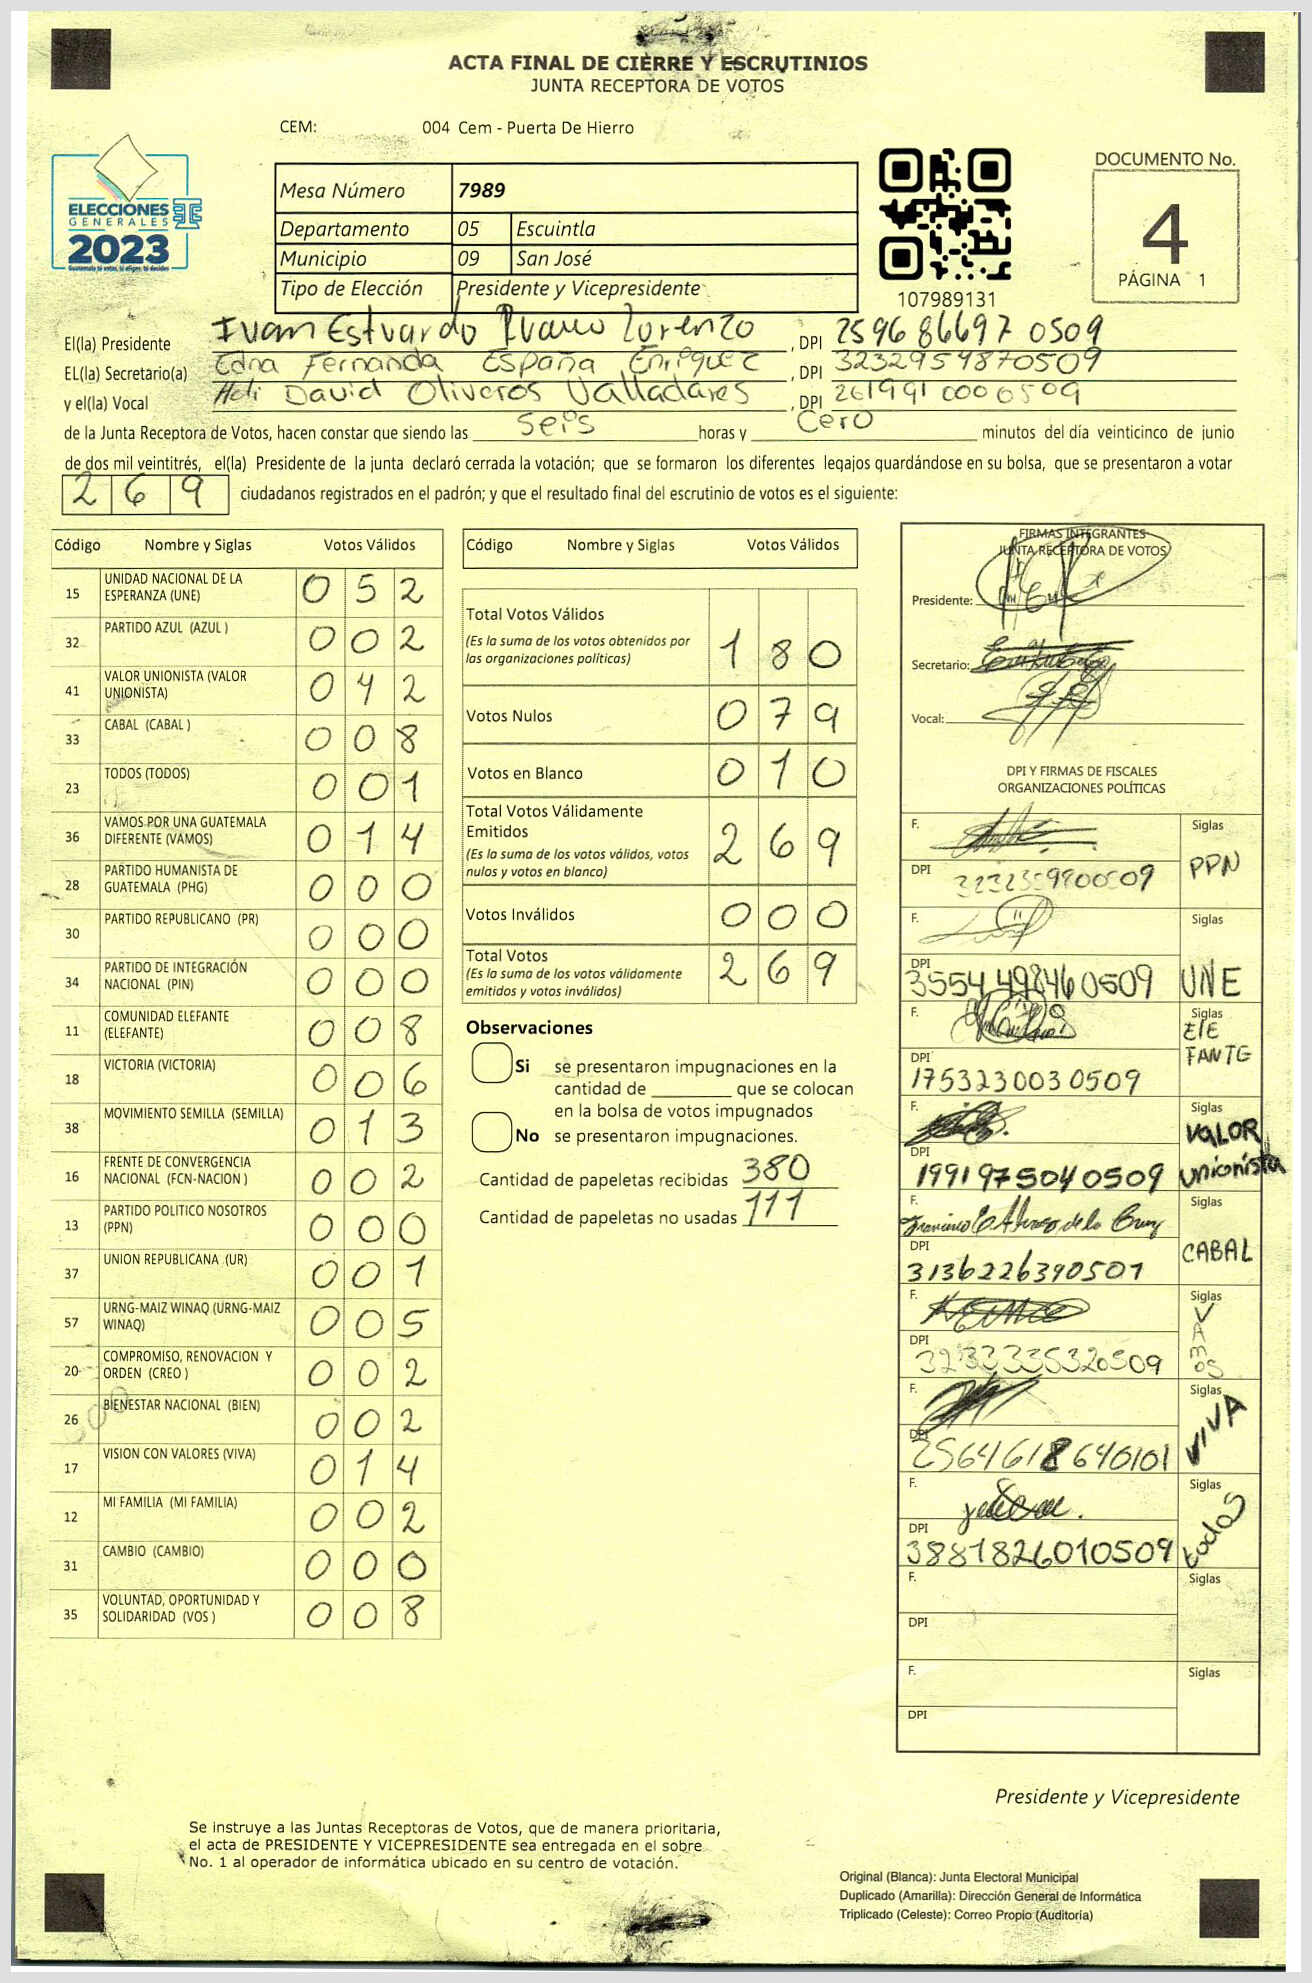 ACTA FINAL DE CIERRE Y ESCRUTINIOS
JUNTA RECEPTORA DE VOTOS
CEM: 004 Cem - Puerta De Hierro
ELECCIONES
GENERALES
2023
Mesa Número 7989
Departamento 05 Escuintla
Municipio 09 San José
Tipo de Elección Presidente y Vicepresidente
107989131
DOCUMENTO No.
4
PÁGINA 1
El(la) Presidente Ivan Estuardo Lorenzo , DPI 2596866970509
EL(la) Secretario(a) Edna Fernanda España Enriquez , DPI 3232959870509
y el(la) Vocal David Oliveros Valladares , DPI 2619910000509
de la Junta Receptora de Votos, hacen constar que siendo las seis horas y Cero minutos del día veinticinco de junio
de dos mil veintitrés, el(la) Presidente de la junta declaró cerrada la votación; que se formaron los diferentes legajos guardándose en su bolsa, que se presentaron a votar
269 ciudadanos registrados en el padrón; y que el resultado final del escrutinio de votos es el siguiente:
Código Nombre y Siglas Votos Válidos
15 UNIDAD NACIONAL DE LA ESPERANZA (UNE) 052
32 PARTIDO AZUL (AZUL ) 002
41 VALOR UNIONISTA (VALOR UNIONISTA) 042
33 CABAL (CABAL ) 008
23 TODOS (TODOS) 001
36 VAMOS POR UNA GUATEMALA DIFERENTE (VAMOS) 014
28 PARTIDO HUMANISTA DE GUATEMALA (PHG) 000
30 PARTIDO REPUBLICANO (PR) 000
34 PARTIDO DE INTEGRACIÓN NACIONAL (PIN) 000
11 COMUNIDAD ELEFANTE (ELEFANTE) 008
18 VICTORIA (VICTORIA) 006
38 MOVIMIENTO SEMILLA (SEMILLA) 013
16 FRENTE DE CONVERGENCIA NACIONAL (FCN-NACION ) 002
13 PARTIDO POLITICO NOSOTROS (PPN) 000
37 UNION REPUBLICANA (UR) 001
57 URNG-MAIZ WINAQ (URNG-MAIZ WINAQ) 005
20 COMPROMISO, RENOVACION Y ORDEN (CREO ) 002
26 BIENESTAR NACIONAL (BIEN) 002
17 VISION CON VALORES (VIVA) 014
12 MI FAMILIA (MI FAMILIA) 002
31 CAMBIO (CAMBIO) 000
35 VOLUNTAD, OPORTUNIDAD Y SOLIDARIDAD (VOS ) 008
Código Nombre y Siglas Votos Válidos
Total Votos Válidos 180
(Es la suma de los votos obtenidos por
las organizaciones políticas)
Votos Nulos 079
Votos en Blanco 010
Total Votos Válidamente
Emitidos 269
(Es la suma de los votos válidos, votos
nulos y votos en blanco)
Votos Inválidos 000
Total Votos 269
(Es la suma de los votos válidamente
emitidos y votos inválidos)
Observaciones
Si se presentaron impugnaciones en la
cantidad de ________ que se colocan
en la bolsa de votos impugnados
No se presentaron impugnaciones.
Cantidad de papeletas recibidas 380
Cantidad de papeletas no usadas 111
FIRMAS INTEGRANTES
JUNTA RECEPTORA DE VOTOS
Presidente:
Secretario:
Vocal:
DPI Y FIRMAS DE FISCALES
ORGANIZACIONES POLÍTICAS
F. Siglas
DPI PPN
F. Siglas
DPI 3554498460509 UNE
F. Siglas
DPI 1753230030509 ELEFANTE
F. Siglas
DPI 1991975040509 VALOR unionista
F. Siglas
DPI 3136226390501 CABAL
F. Siglas
DPI 3233335320509 VAmos
F. Siglas
DPI 2564618640101 VIVA
F. Siglas
DPI 3881826010509 todos
F. Siglas
DPI
F. Siglas
DPI
Presidente y Vicepresidente
Se instruye a las Juntas Receptoras de Votos, que de manera prioritaria,
el acta de PRESIDENTE Y VICEPRESIDENTE sea entregada en el sobre
No. 1 al operador de informática ubicado en su centro de votación.
Original (Blanca): Junta Electoral Municipal
Duplicado (Amarilla): Dirección General de Informática
Triplicado (Celeste): Correo Propio (Auditoría)